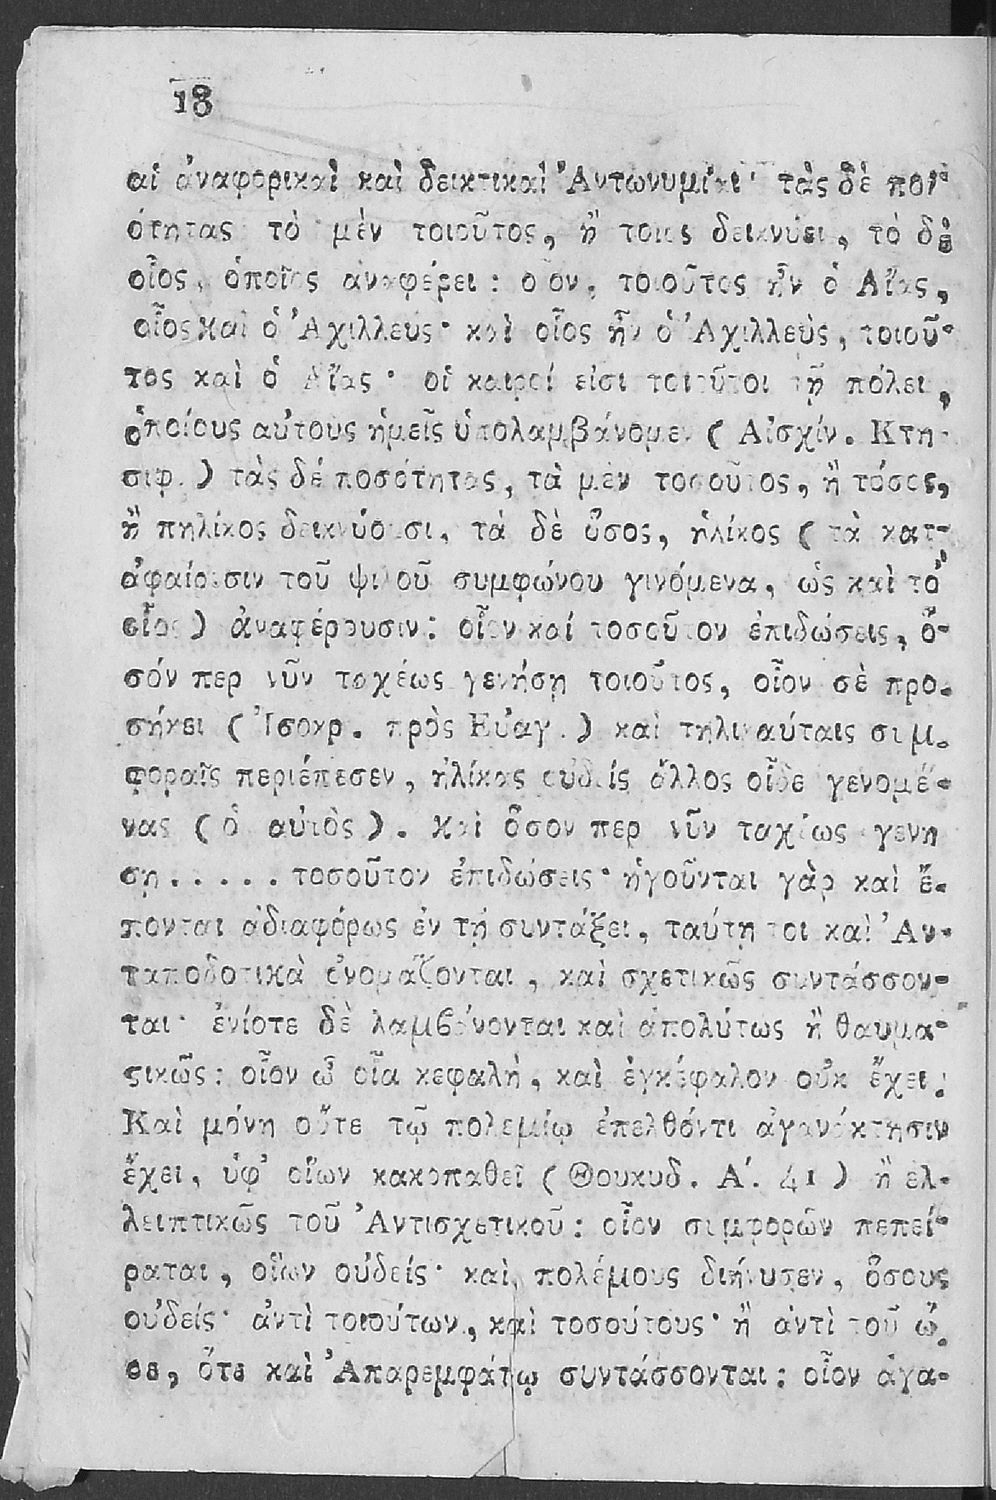 18
αἱ ἀναφορικαὶ καὶ δεικτικαὶ Ἀντωνυμίαι· τὰς δὲ ποι-
ότητας τὸ μὲν τοιοῦτος, ἢ τοῖος δεικνύει, τὸ δὲ
οἷος, ὁποῖος ἀναφέρει: οἷον, τοιοῦτος ἦν ὁ Αἴας,
οἷος καὶ ὁ Ἀχιλλεύς· καὶ οἷος ἦν ὁ Ἀχιλλεὺς, τοιοῦ-
τος καὶ ὁ Αἴας· οἱ καιροί εἰσι τοιοῦτοι τῇ πόλει,
ὁποίους αὐτοὺς ἡμεῖς ὑπολαμβάνομεν (Αἰσχίν. Κτη-
σιφ.) τὰς δέ ποσότητας, τὰ μὲν τοσοῦτος, ἢ τόσος,
ἢ πηλίκος δεικνύουσι, τὰ δὲ ὅσος, ἡλίκος (τὰ κατ-
ἀφαίρεσιν τοῦ ψιλοῦ συμφώνου γινόμενα, ὡς καὶ τὸ
οἷος) ἀναφέρουσιν: οἷον καί τοσοῦτον ἐπιδώσεις, ὅ-
σόν περ νῦν ταχέως γενήσῃ τοιοῦτος, οἷον σὲ προ-
σήκει (Ἰσοκρ. πρὸς Εὐαγ.) καὶ τηλικαύταις συμ-
φοραῖς περιέπεσεν, ἡλίκας οὐδείς ἄλλος οἶδε γενομέ-
νας (ὁ αὐτὸς). Καὶ ὅσον περ νῦν ταχέως γενη
σῃ..... τοσοῦτον ἐπιδώσεις· ἡγοῦνται γὰρ καὶ ἕ-
πονται ἀδιαφόρως ἐν τῇ συντάξει, ταύτῃ τοι καὶ Ἀν-
ταποδοτικὰ ὀνομάζονται, καὶ σχετικῶς συντάσσον-
ται· ἐνίοτε δὲ λαμβάνονται καὶ ἀπολύτως ἢ θαυμα-
ϛικῶς: οἷον ὦ οἵα κεφαλὴ, καὶ ἐγκέφαλον οὐκ ἔχει:
Καὶ μόνη οὔτε τῷ πολεμίῳ ἐπελθόντι ἀγανάκτησιν
ἔχει, ὑφ' οἵων κακοπαθεῖ (Θουκυδ. Α΄. 41) ἢ ἐλ-
λειπτικῶς τοῦ Ἀντισχετικοῦ: οἷον συμφορῶν πεπεί-
ραται, οἵων οὐδείς· καὶ, πολέμους διήνυσεν, ὅσους
οὐδείς· ἀντὶ τοιούτων, καὶ τοσούτους· ἢ ἀντὶ τοῦ ὥ-
ϛε, ὅτε καὶ Ἀπαρεμφάτῳ συντάσσονται: οἷον ἀγα-